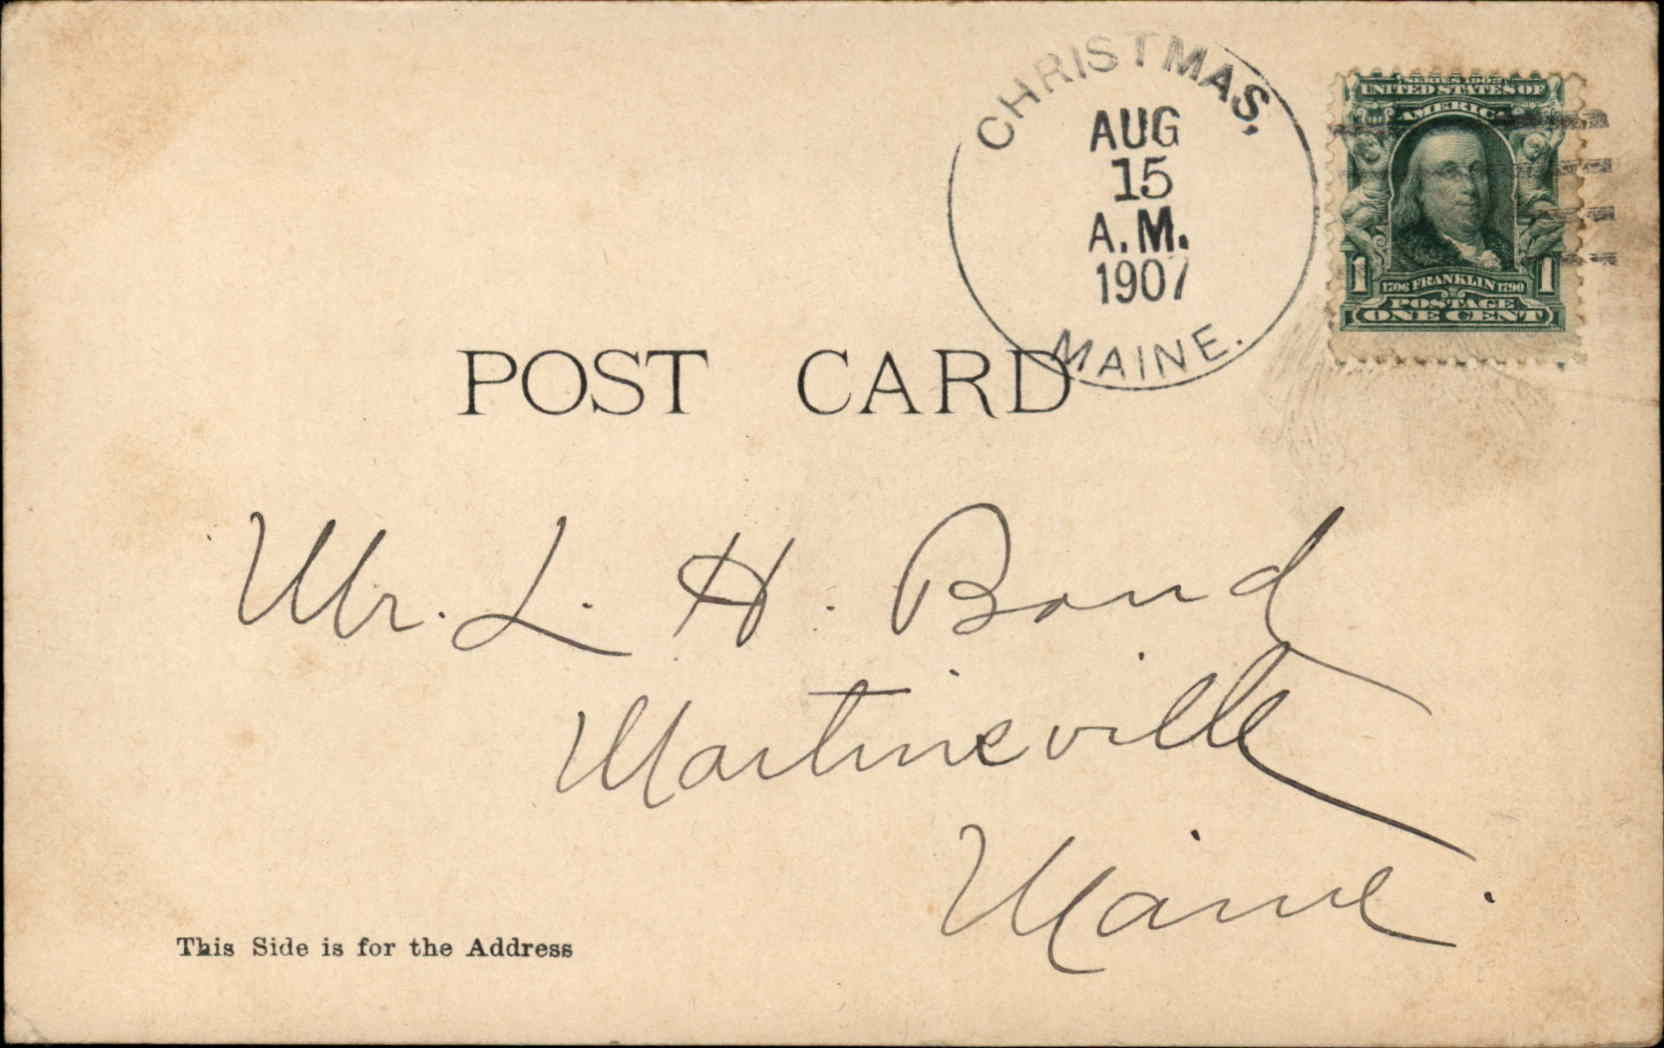 CHRISTMAS,
AUG
15
A.M.
1907
MAINE.
SERIES 1902
UNITED STATES OF
AMERICA
1706 FRANKLIN 1790
1 1
POSTAGE
ONE CENT
POST CARD
Mr. L. H. Bond
Martinsville
Maine.
This Side is for the Address